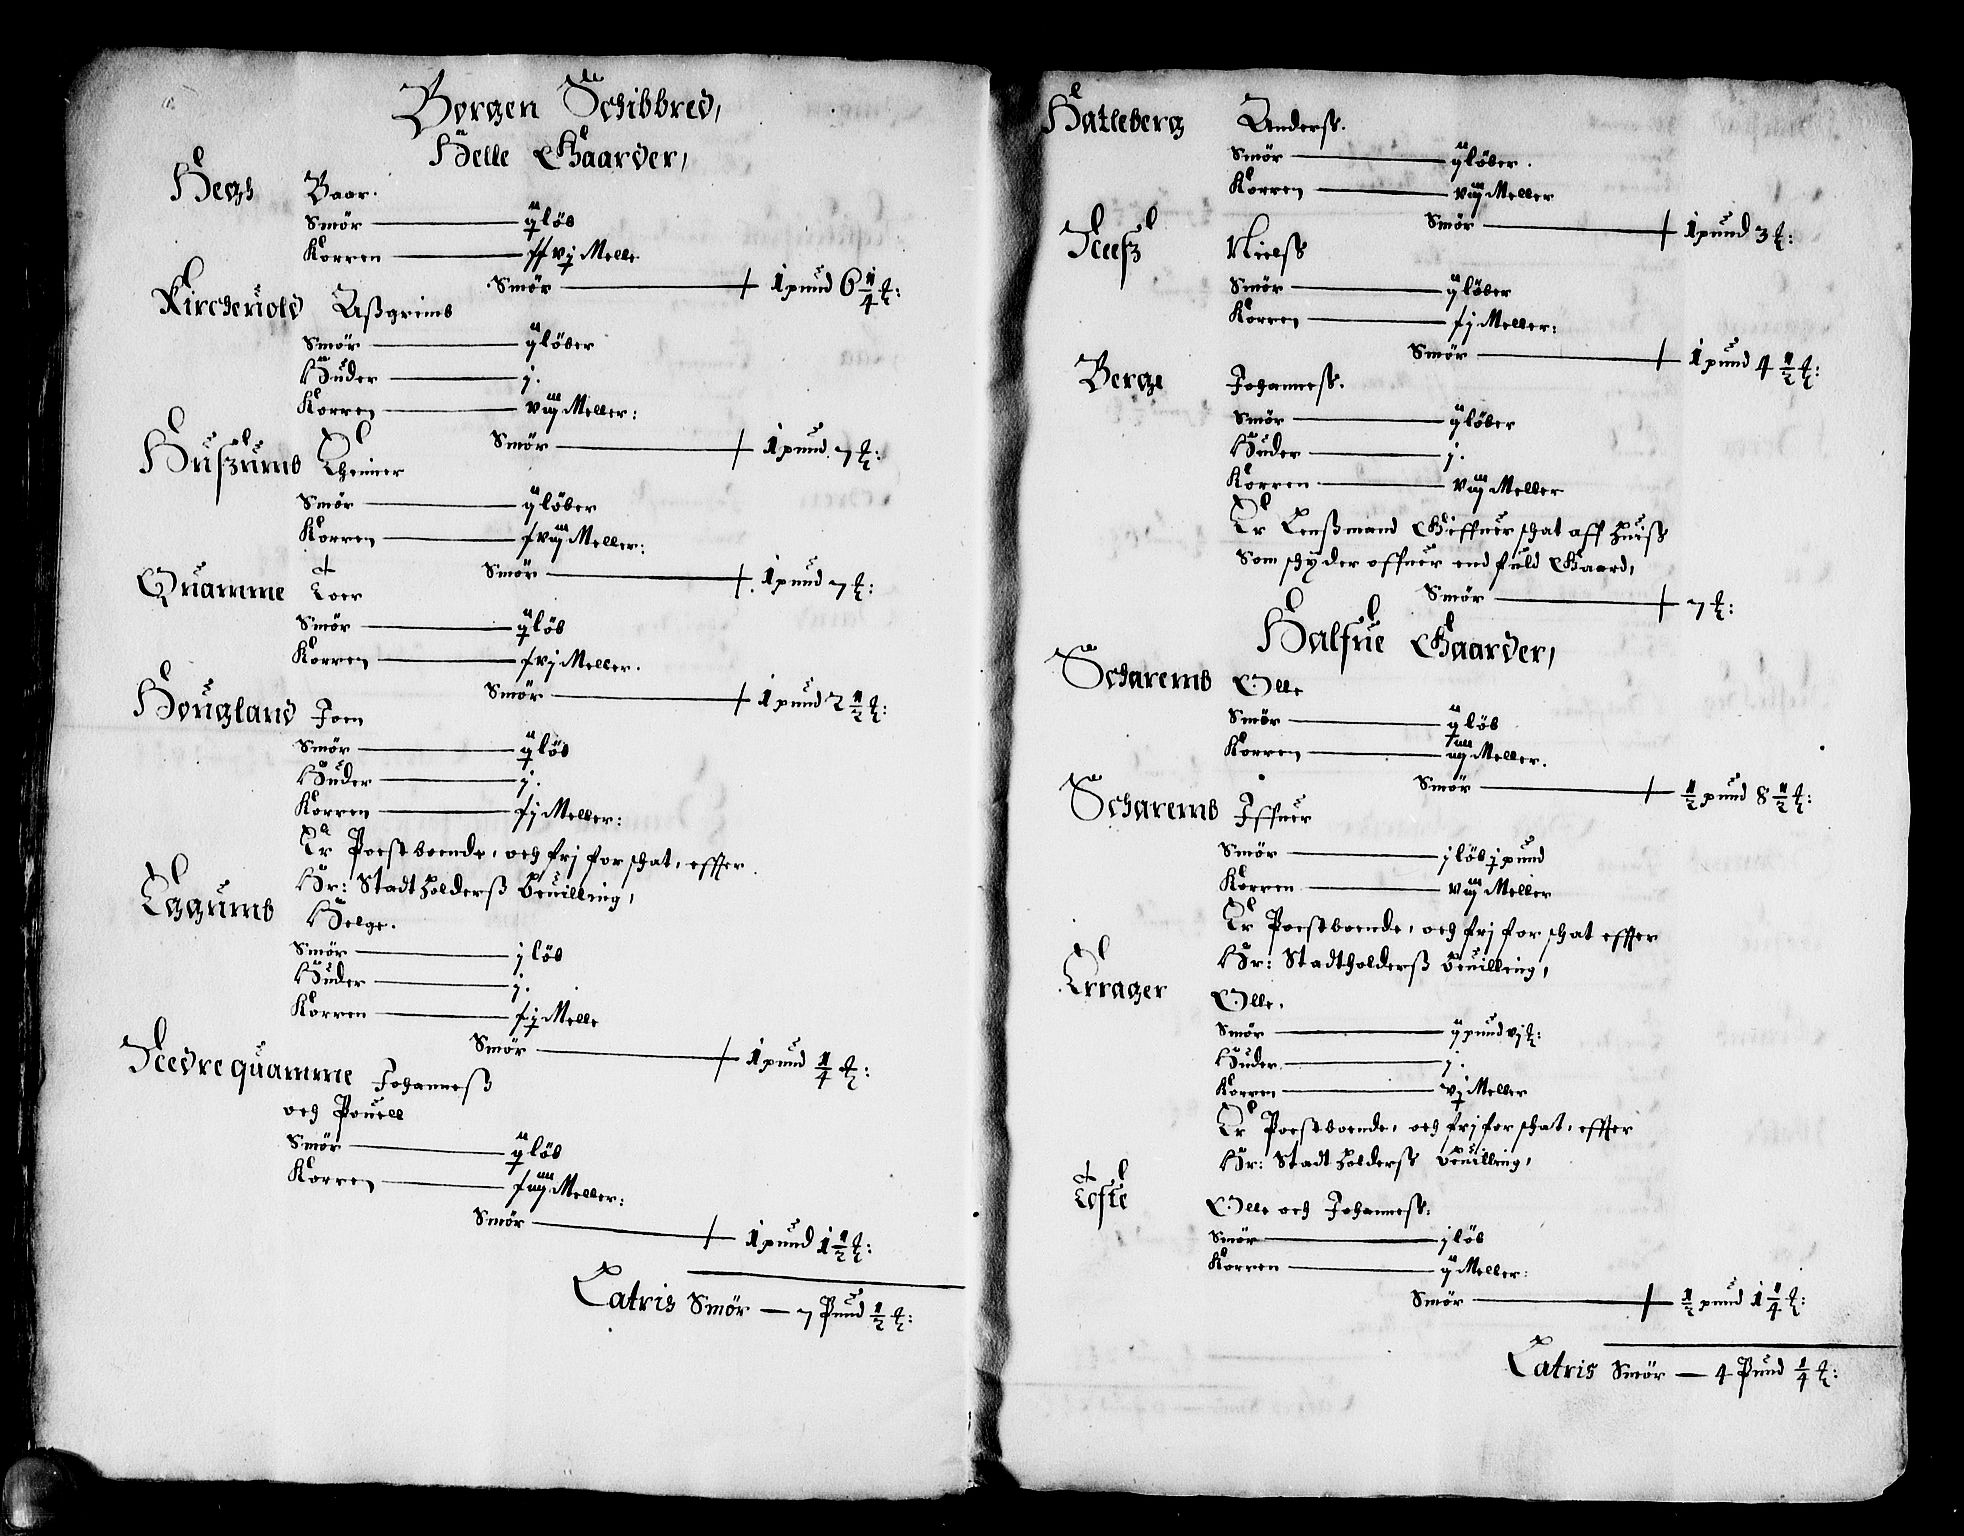 Borgen Schibbred,
Helle Gaarder,
Hegh Baar.
Smør — ij løb
Korren — ff vj Melle
Smør — 1 pund 6 1/4 ℔:
Kircheuold Aßgrimb
Smør — ij løber
Huder — j.
Korren — viij Meller:
Smør — 1 pund 7 ℔:
Huszumb Theimer
Smør — ij løber
Korren — f viij Meller:
Smør — 1 pund 7 ℔:
Quamme Toer
Smør — ij løb
Korren — f vj Meller.
Smør — 1 pund 2 1/2 ℔:
Hougland Joen
Smør — ij løb
Huder — j.
Korren — f j Meller:
Er Poestboende, och frj for schat, effter
Hr: Stadtholderß beuilling,
Eggumb Helge.
Smør — j løb
Huder — j.
Korren — f j Melle
Smør — 1 pund 1/4 ℔:
Nedre quamme Johanneß
och Pouell
Smør — ij løb
Korren — f iiij Meller:
Smør — 1 pund 1 1/2 ℔:
Latris Smør — 7 Pund 1/2 ℔:
Hatleberg Anderß.
Smør — ij løber.
Korren — viij Meller
Smør — 1 pund 3 ℔:
Neesz Nielß
Smør — ij løber
Korren — f j Meller:
Smør — 1 pund 4 1/2 ℔:
Berge Johanneß.
Smør — ij løber
Huder — j.
Korren — viij Meller
Er Lenßmand Giffuer schat aff huiß
Som schyder offuer end fuld Gaard,
Smør — 7 ℔:
Halfue Gaarder,
Scharemb Olle
Smør — ij løb
Korren — iiij Meller.
Smør — 1/2 pund 8 1/2 ℔:
Scharemb Iffuer
Smør — j løb j pund
Korren — viij Meller
Er Poestboende, och frj for schat effter
Hr: Stadtholderß beuilling,
Errager Olle.
Smør — ij pund vj ℔:
Huder — j.
Korren — vj Meller
Er Poestboende, och frj for schat, effter
Hr: Stadtholderß beuilling,
Tofte Olle och Johanneß.
Smør — j løb
Korren — ij Meller:
Smør — 1/2 pund 1 1/4 ℔:
Latris Smør — 4 Pund 1/4 ℔: